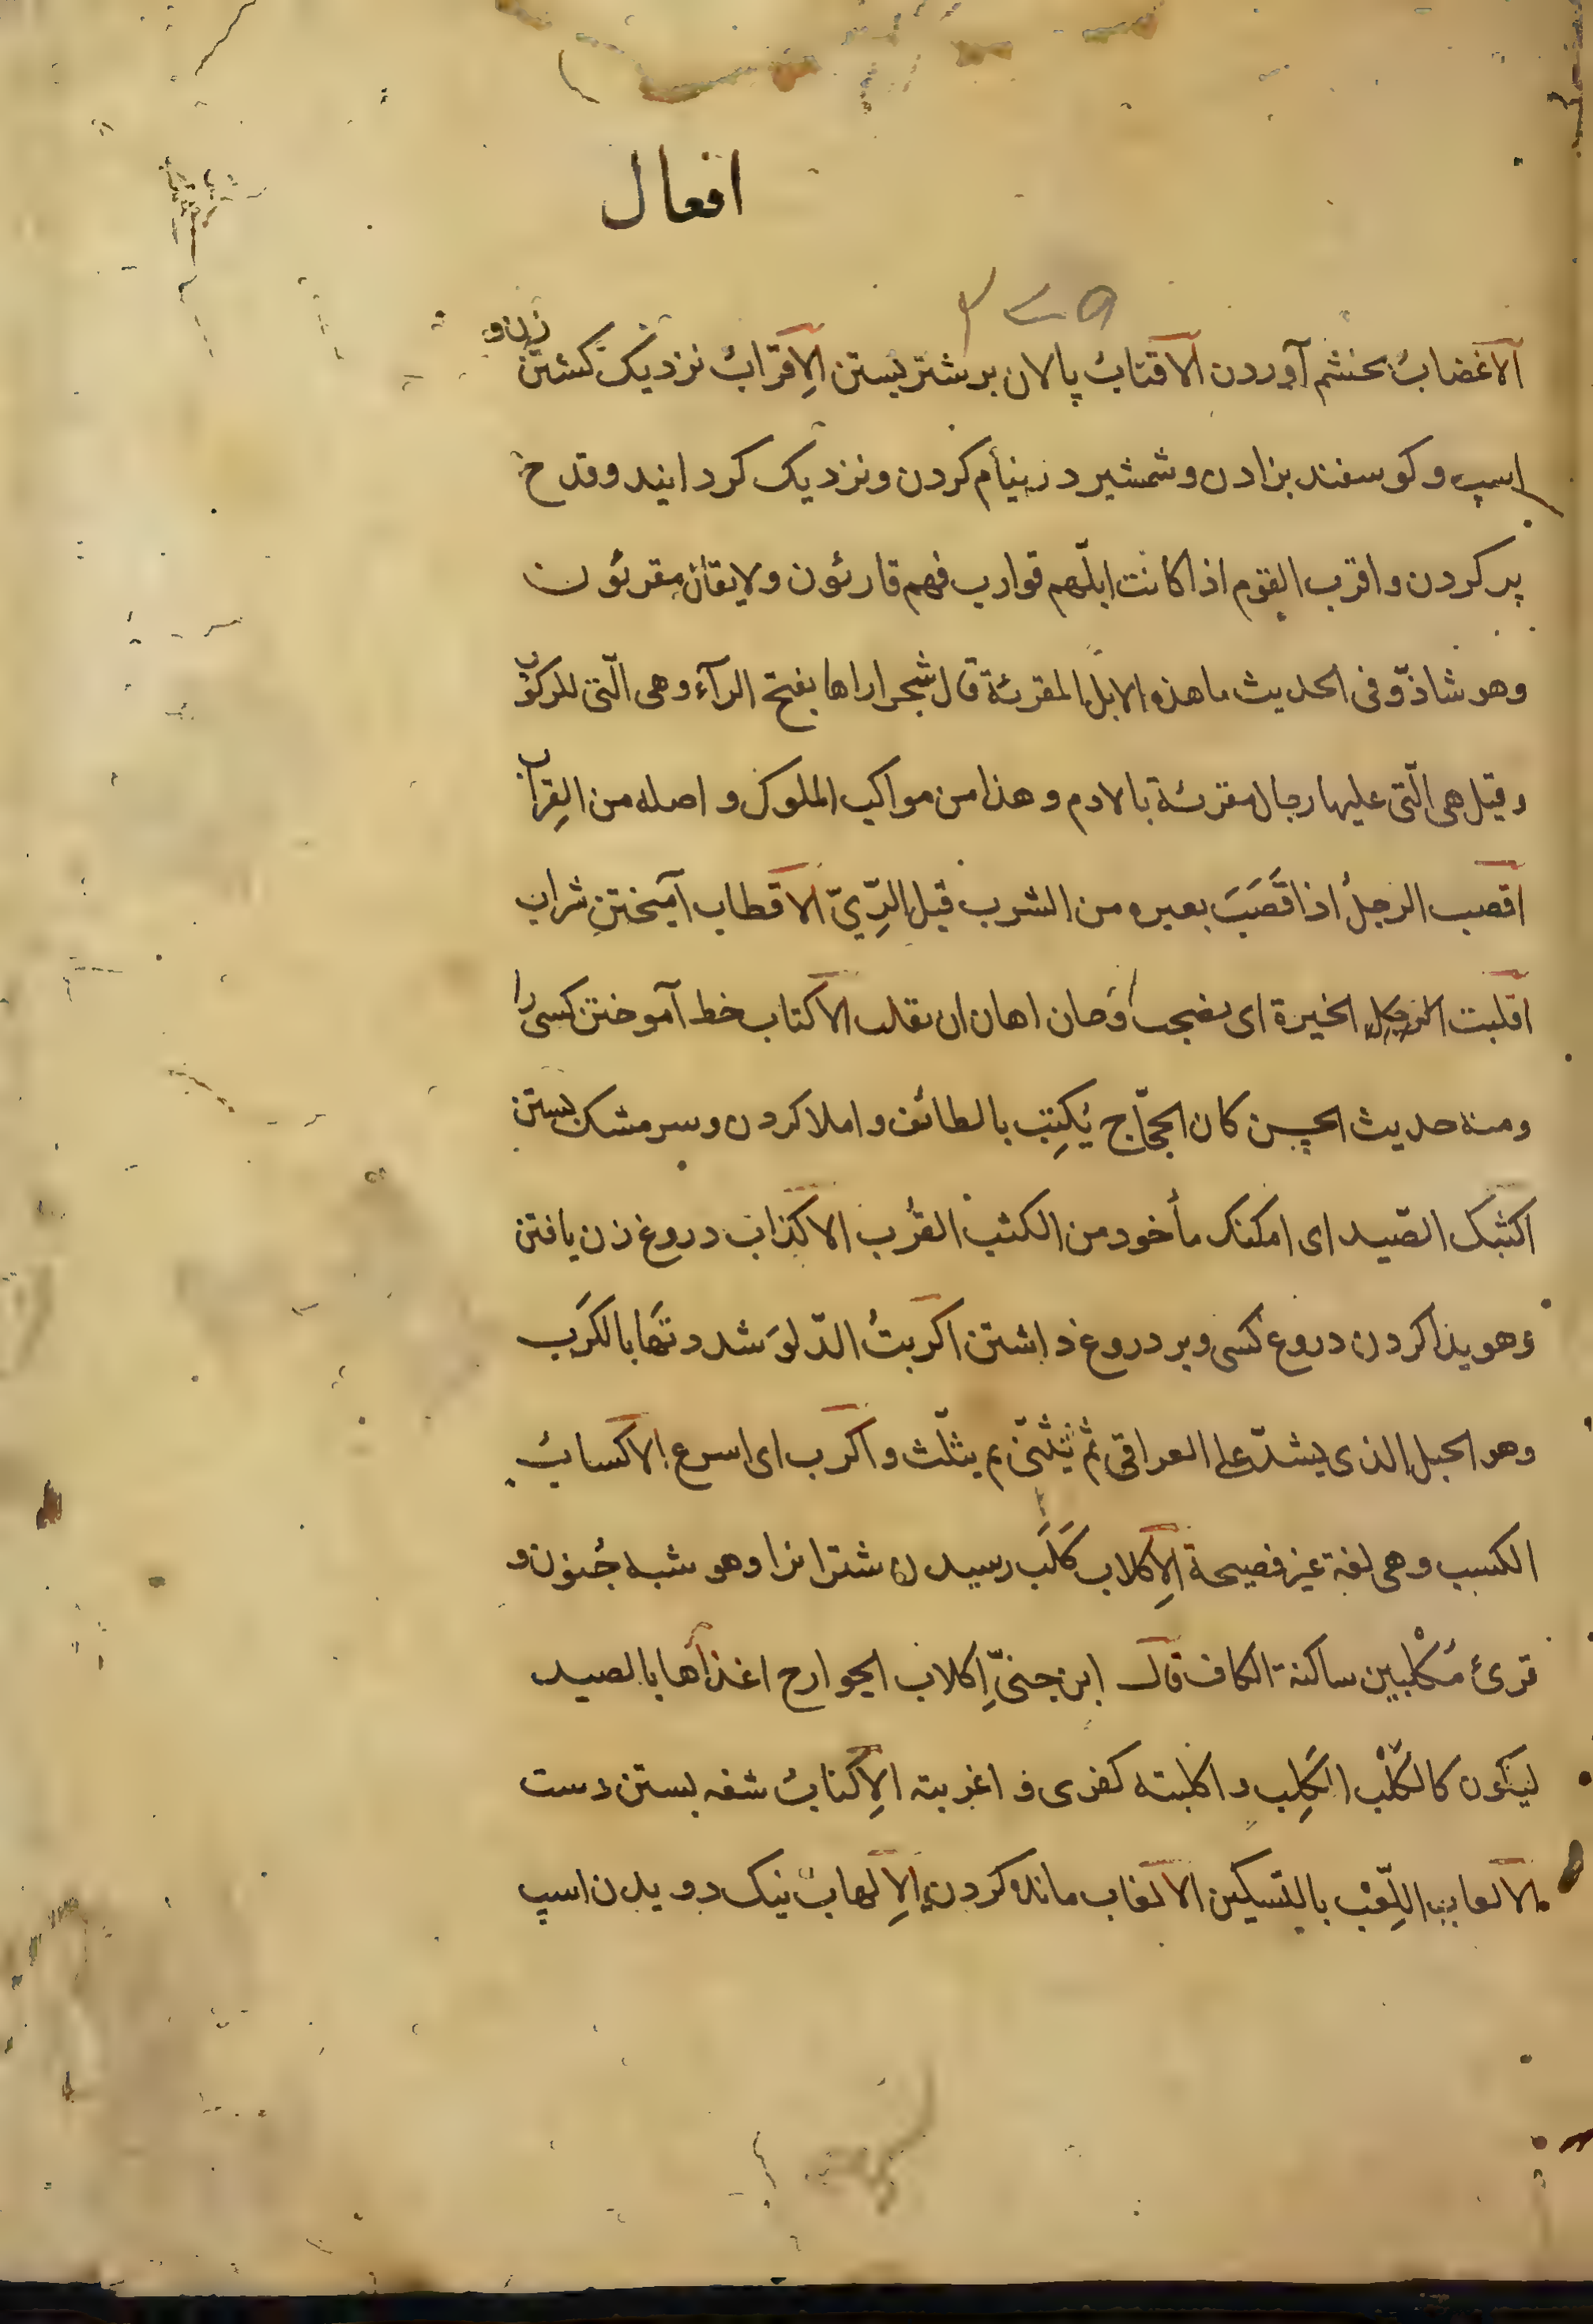 افعال
۳۷۵
الاغضابُ بخشم آوردن الاقتابُ پالان بر شتر بستن الاِقرابُ نزدیک کشتن زن و
اسپ و کوسفند بزادن و شمشیر در نیام کردن و نزدیک کردانیدن و قدح
پر کردن و اقرب القوم اذا کانت ابلهم قوارب فهم قاربون ولا یقال مقربون
وهو شاذّ وفی الحدیث ما هذه الابل المقربة قال شجر اراها بفتح الرآء وهی الّتی للرکوب
وقیل هی الّتی علیها رجال مقربة بالادم وهذا من مراکب الملوک و اصله من القِراب
اقصب الرجلُ اذا قَصَبَ بعیره من الشرب قبل الرِّیّ الاقطاب آمیختنِ شراب
اقلبت الخبزة ای نضجت وحان لها ان تقلب الاکتاب خط آموختن کسی را
ومنه حدیث الحسن کان الحجّاج یُکتِب بالطائف و املا کردن و سر مشک بستن
اکثبک الصّید ای امکنک مأخوذ من الکثب القُرب الاکذاب دروغ زن یافتن
و هویذا کردن دروغ کسی و بر دروغ داشتن اکربتُ الدّلوَ شددتها بالکَرَب
وهو الحبل الذی یشدّ علی العراقی ثم یُثنّی ثم یثلّث و اکرب ای اسرع الاکسابُ
الکسب وهی لغة غیر فصیحة الاِکلاب کَلَب رسیدن شترانرا وهو شبه جُنون و
قرئ مُکْلبین ساکنة الکاف قال ابن جنیّ اِکلاب الجوارح اغرآها بالصید
لیکون کالکَلْب الکَلِب و اکلبته کضری و اغریته الاِکنابُ شغه بستن دست
الالعاب اللِّعْب بالتسکین الالغاب مانده کردن الاِلهابُ نیک دویدن اسپ